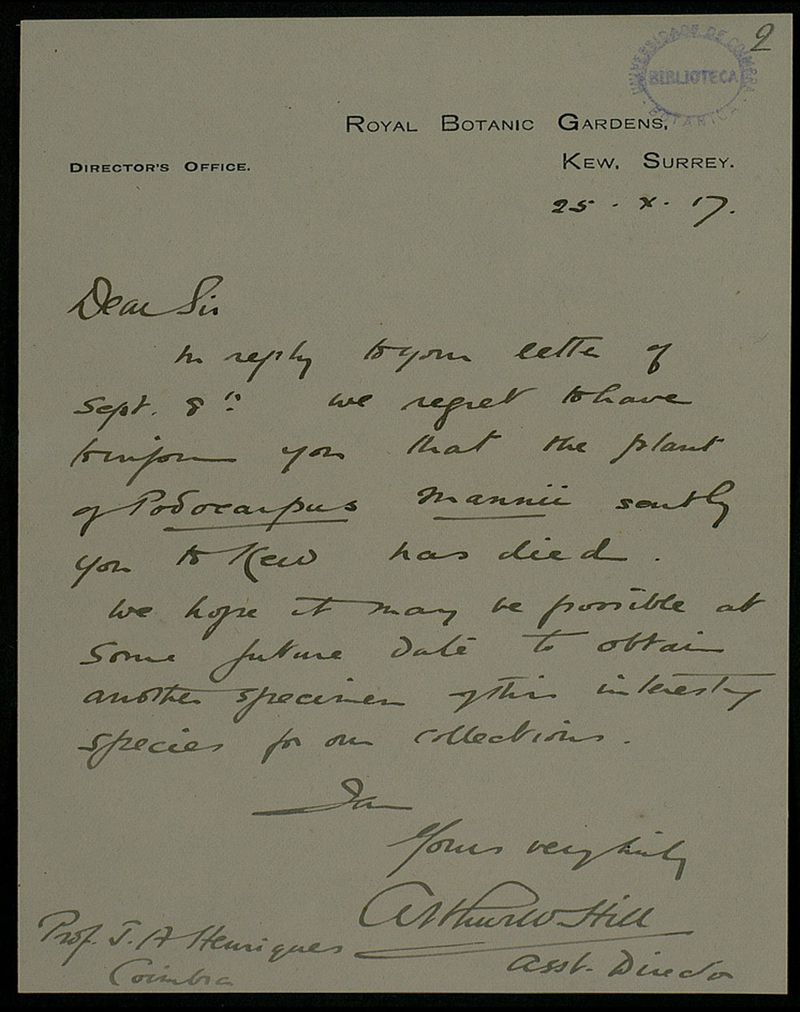 2
UNIVERSIDADE DE COIMBRA
BIBLIOTECA
BOTANICA
ROYAL BOTANIC GARDENS,
DIRECTOR'S OFFICE.
KEW, SURREY.
25 . X . 17.
Dear Sir
In reply to your letter of
Sept. 8th we regret to have
to inform you that the plant
of Podocarpus Mannii sent by
you to Kew has died.
We hope it may be possible at
some future date to obtain
another specimen of this interesting
species for our collections.
I am
Yours very truly
Arthur W. Hill
Asst. Director
Prof. J. A Henriques
Coimbra